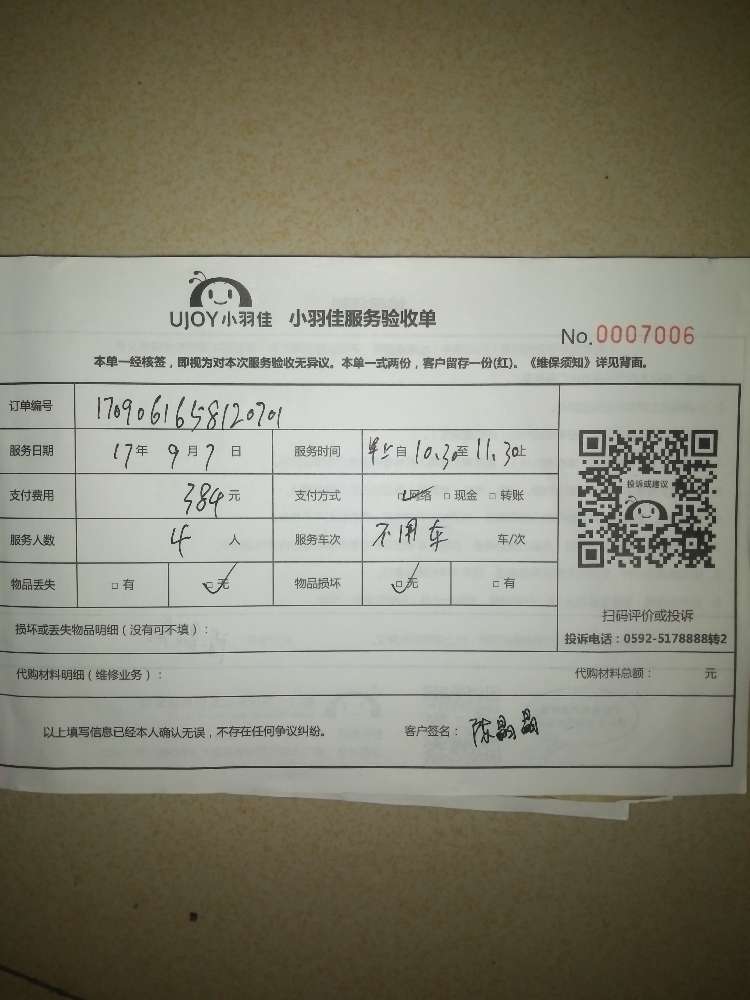 UJOY小羽佳 小羽佳服务验收单
No.0007006
本单一经核签，即视为对本次服务验收无异议。本单一式两份，客户留存一份(红)。《维保须知》详见背面。
订单编号 1709061658120701
服务日期 17年 9月 7日 服务时间 自10.30至11.30止
支付费用 384元 支付方式 ☑网络 □现金 □转账
投诉或建议
服务人数 4人 服务车次 不用车 车/次
物品丢失 □有 ☑无 物品损坏 ☑无 □有
扫码评价或投诉
损坏或丢失物品明细（没有可不填）：
投诉电话：0592-5178888转2
代购材料明细（维修业务）： 代购材料总额： 元
以上填写信息已经本人确认无误，不存在任何争议纠纷。 客户签名：陈晶晶